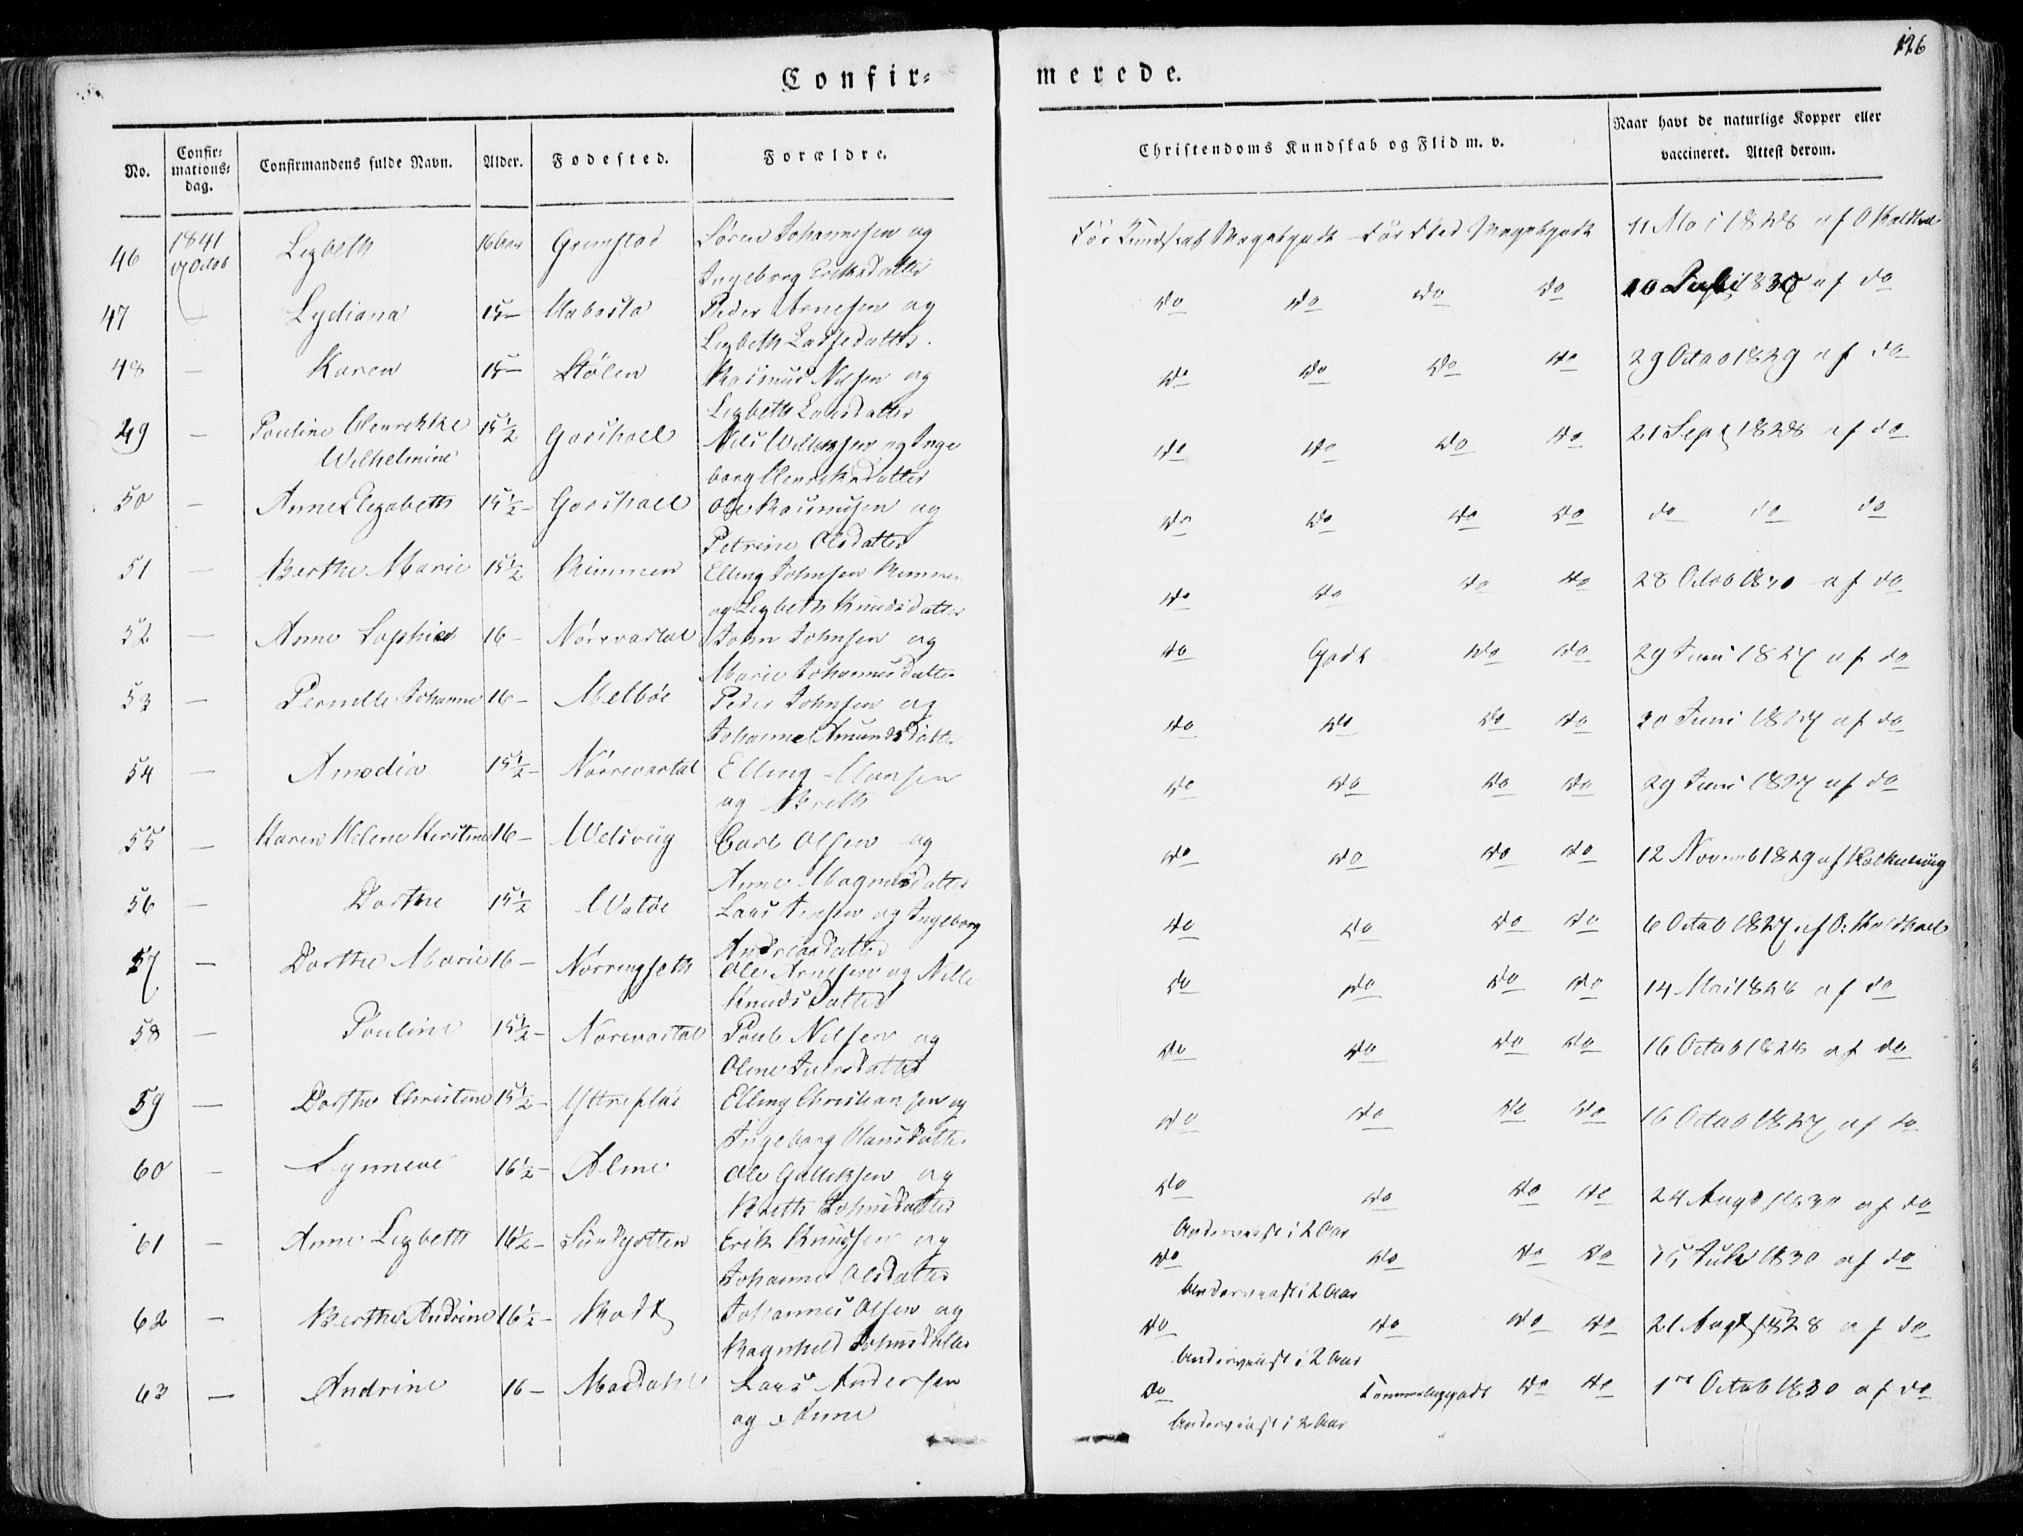 126
Confir-
merede.
No.
Confir-
mations-
dag.
Confirmandens fulde Navn.
Alder.
Fødested.
Forældre.
Christendoms Kundskab og Flid m. v.
Naar havt de naturlige Kopper eller
vaccineret. Attest derom.
46 1841 Lizbeth 16 Aar Grimstad Søren Johannesen og For Kundskab Megetgodt For Flid Megetgodt 11 Mai 1828 af O
Ingeborg Eriksdatter
47 Lydiana 15 – Peder Arnesen og do do do do 10 Juli 1830 af do
Lizbeth Ladsedatter.
48 – Karen 15 – Stølen Rasmus Nilsen og do do do do 29 Octob 1829 af do
Lizbeth Larsdatter
49 – Pouline Henrikke 15 1/2 Gorshael Nils Willumsen og Inge do do do do 21 Sept 1828 af do
Wilhelmine borg Henriksdatter
50 – Anne Elizabeth 15 1/2 – Gorshael Ole Rasmusen og do do do do do do do
Petrine Olsdatter
51 – Berthe Marie 15 1/2 Rimmen Elling Johnsen do do do do 28 Octob 1830 af do
og Lizbeth Knudsdatter
52 – Anne Sophie 16 – Nørevastal John Johnsen og do Godt do do 29 Juni 1827 af do
Marie Johannesdatter
53 – Pernille Johanne 16 – Melbøe Peder Johnsen og do do do do 20 Juni 1827 af do
Johanne Amundsdatter
54 – Amodia 15 1/2 – Nørrevastal Elling Hansen do do do do 29 Juni 1827 af do
og Brethe
55 – Karen Helene Kerstine 16 – Welsviig Carl Olsen og do do do do 12 Novemb 1829 af
Anne Magnusdatter
56 – Dorthe 15 1/2 Watøe Lars Jensen og Ingeborg do do do do 6 Octob 1827 af O:
Andreasdatter
57 – Dorthe Marie 16 – Norringseth Ole Arnesen og Nille do do do do 14 Mai 1828 af do
Knudsdatter
58 – Pouline 15 1/2 – Norevastal Poul Nilsen og do do do do 16 Octob 1828 af do
Oline Iversdatter
59 – Dorthe Christine 15 1/2 – Yttreflaa Elling Christiansen og do do do do 16 Octob 1827 af do
Ingeborg Hansdatter
60 – Synneve 16 1/2 – Alme Ole Gullichsen og do do do do 24 Aug 1830 af do
Breth Johnsdatter Underviist i 2 Aar
61 – Anne Lizbeth 16 1/2 – Sundgotten Erik Knudsen og do do do do 15 Juli 1830 af do
Johanne Olsdatter Underviist i 2 Aar
62 – Berthe Andrine 16 1/2 – Rødt Johannes Olsen og do do do do 21 Augt 1828 af do
Ragnhild Johnsdatter Underviist i 2 Aar
63 – Andrine 16 – Mordahl Lars Andersen do Temmeliggodt do do 1ste Octob 1830 af do
og Anne Underviist i 2 Aar